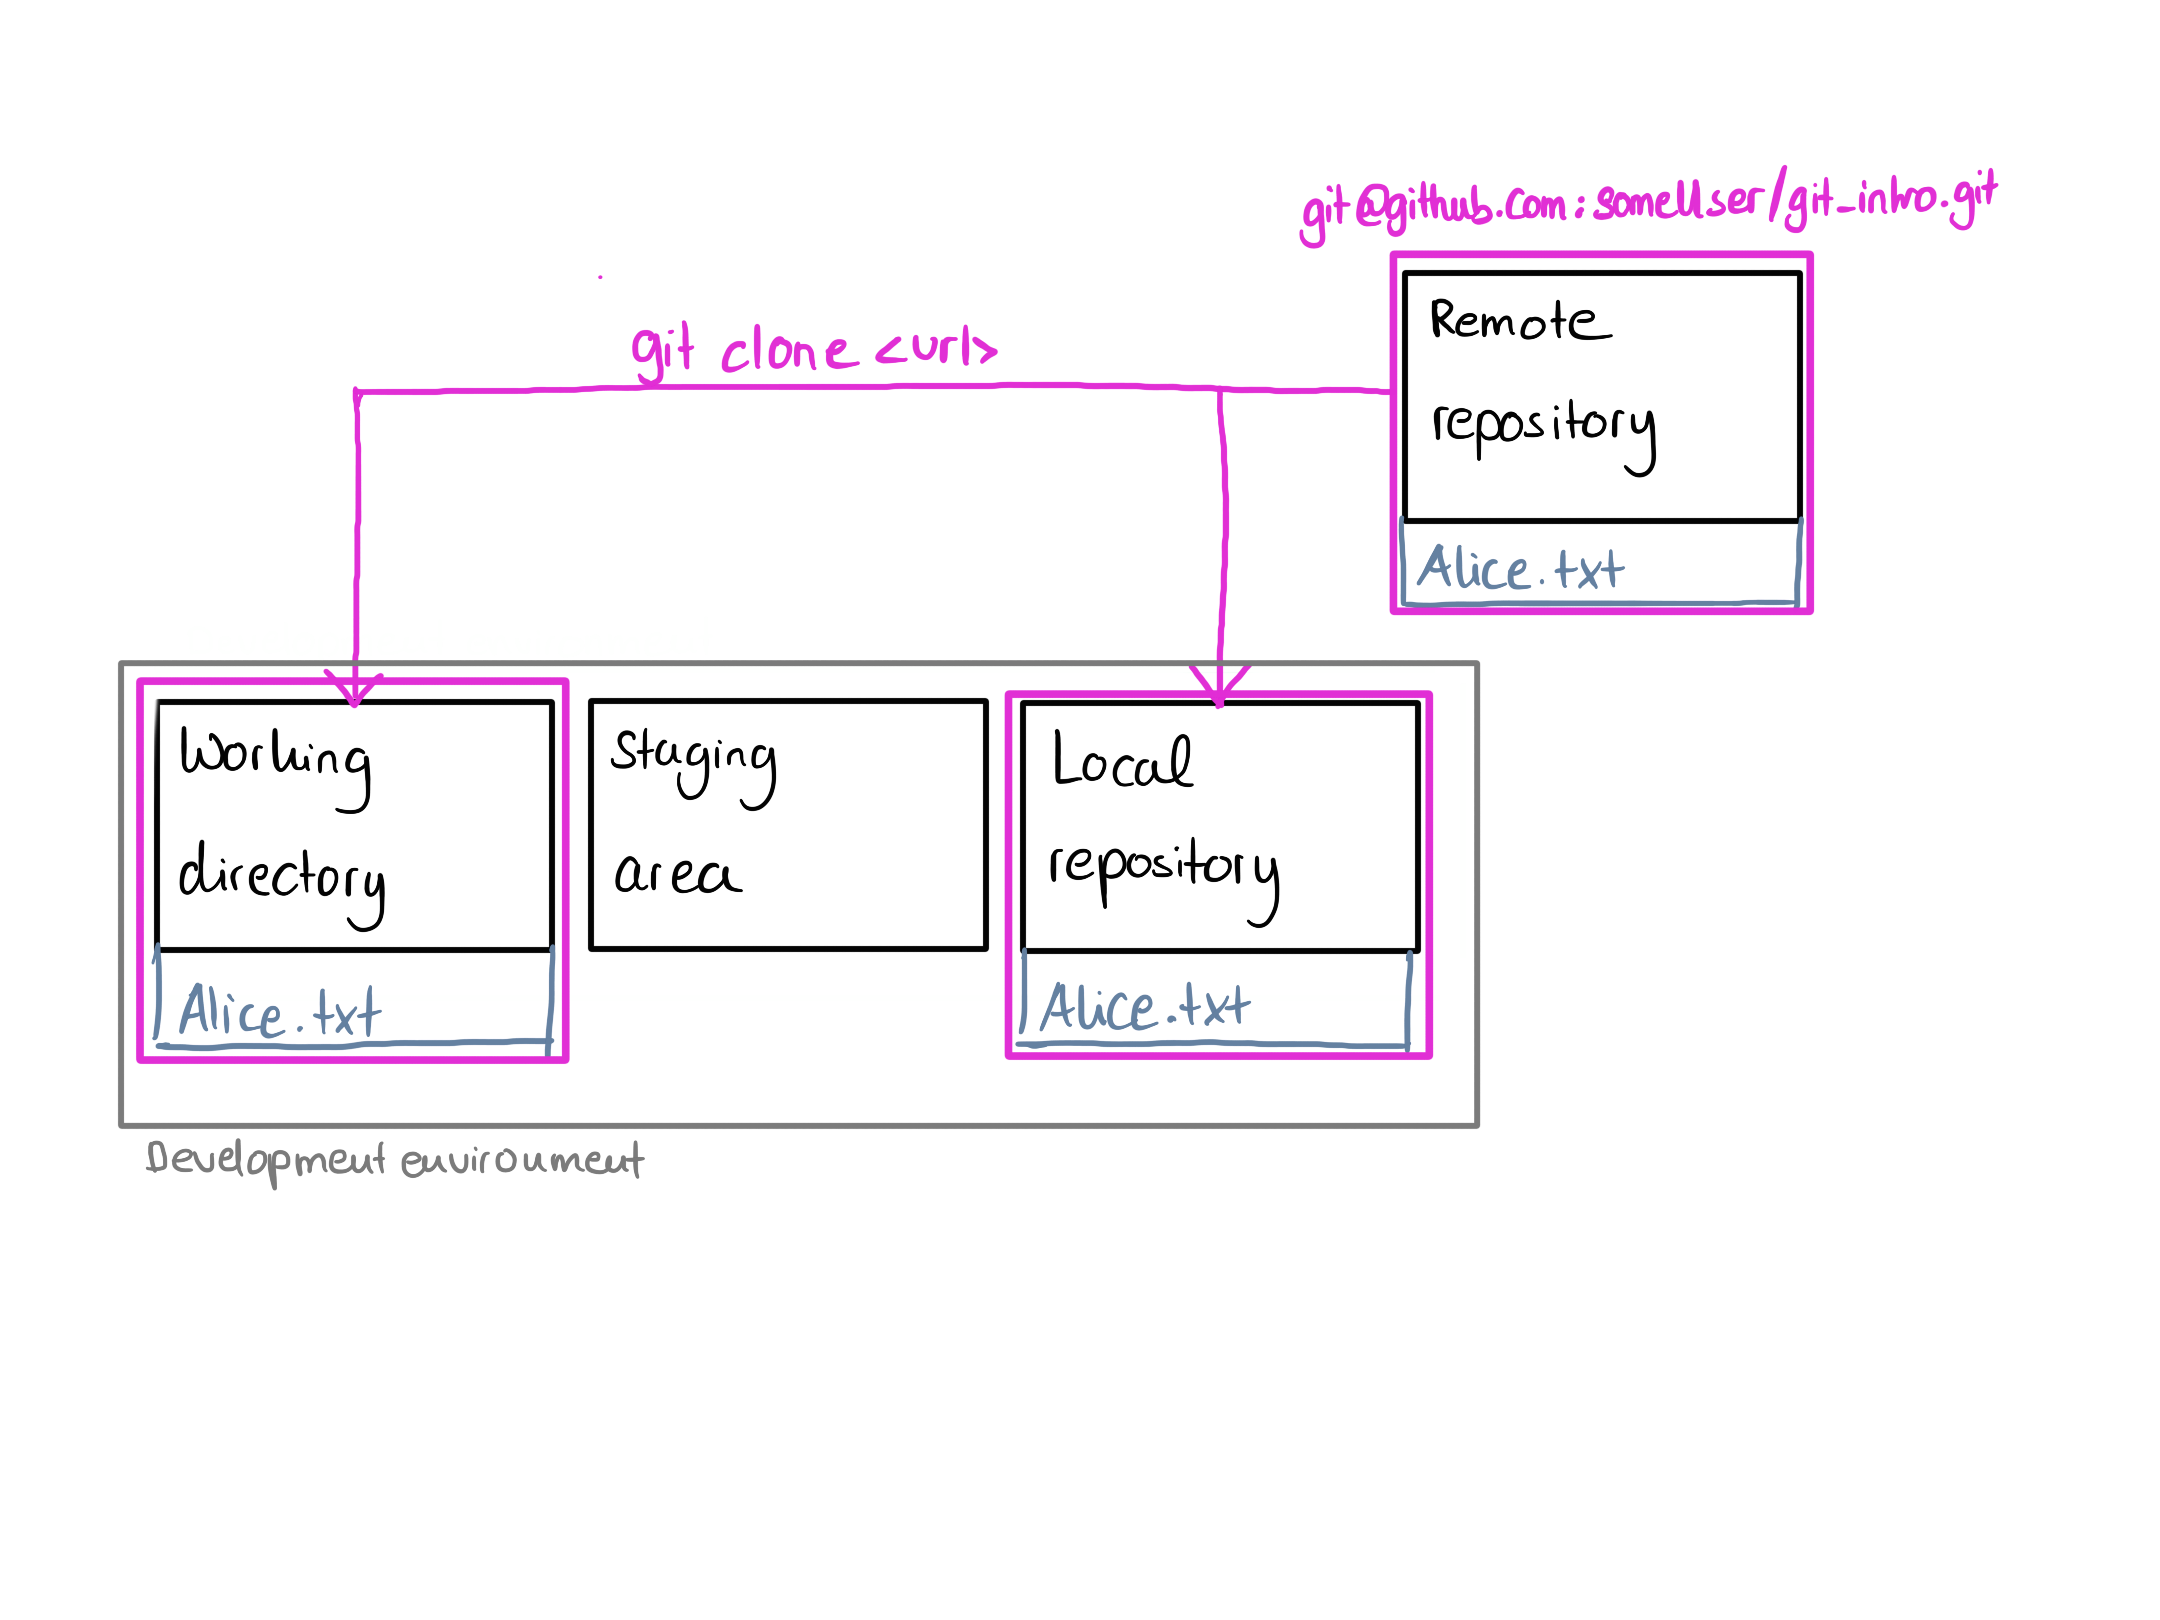 git@github.com:someUser/git_intro.git
git clone <url>
Remote
repository
Alice.txt
Working
directory
Alice.txt
Staging
area
Local
repository
Alice.txt
Development environment